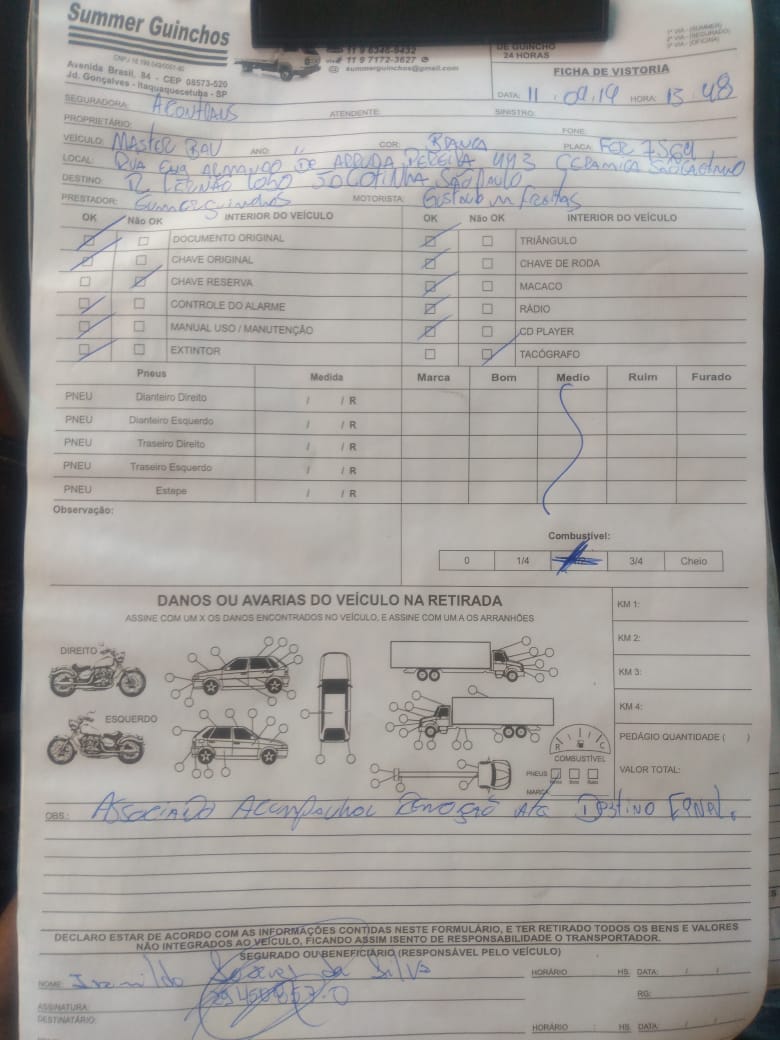 Summer Guinchos
CNPJ 18.199.043/0001-40
Avenida Brasil, 84 - CEP 08573-520
Jd. Gonçalves - Itaquaquecetuba - SP
11 9 6346-9432
11 9 7172-3627
summerguinchos@gmail.com
DE GUINCHO
24 HORAS
1ª VIA - (SUMMER)
2ª VIA - (SEGURADO)
3ª VIA - (OFICINA)
FICHA DE VISTORIA
DATA: 11 / 09.19 HORA: 13:48
SEGURADORA: ATENDENTE: SINISTRO:
PROPRIETÁRIO: FONE:
VEÍCULO: MASTER BAU ANO: COR: BRANCA PLACA: FER 7569
LOCAL: RUA ENG ARMANDO DE ARRUDA PEREIRA 443 CERAMICA SÃO CAETANO
DESTINO: R. FERNÃO LOBO JOCOTINHA SÃO PAULO
PRESTADOR: Summer guinchos MOTORISTA: Gustavo m Freitas
OK Não OK INTERIOR DO VEÍCULO OK Não OK INTERIOR DO VEÍCULO
DOCUMENTO ORIGINAL TRIÂNGULO
CHAVE ORIGINAL CHAVE DE RODA
CHAVE RESERVA MACACO
CONTROLE DO ALARME RÁDIO
MANUAL USO / MANUTENÇÃO CD PLAYER
EXTINTOR TACÓGRAFO
Pneus Medida Marca Bom Medio Ruim Furado
PNEU Dianteiro Direito / / R
PNEU Dianteiro Esquerdo / / R
PNEU Traseiro Direito / / R
PNEU Traseiro Esquerdo / / R
PNEU Estepe / / R
Observação:
Combustível:
0 1/4 1/2 3/4 Cheio
DANOS OU AVARIAS DO VEÍCULO NA RETIRADA
ASSINE COM UM X OS DANOS ENCONTRADOS NO VEÍCULO, E ASSINE COM UM A OS ARRANHÕES
DIREITO
ESQUERDO
KM 1:
KM 2:
KM 3:
KM 4:
PEDÁGIO QUANTIDADE ( )
VALOR TOTAL:
COMBUSTÍVEL
PNEUS
MARCA
OBS.: Associado Acompanhou Remoção Até Destino Final.
DECLARO ESTAR DE ACORDO COM AS INFORMAÇÕES CONTIDAS NESTE FORMULÁRIO, E TER RETIRADO TODOS OS BENS E VALORES
NÃO INTEGRADOS AO VEÍCULO, FICANDO ASSIM ISENTO DE RESPONSABILIDADE O TRANSPORTADOR.
SEGURADO OU BENEFICIÁRIO (RESPONSÁVEL PELO VEÍCULO)
NOME: da Silva HORÁRIO : HS. DATA: / /
ASSINATURA: RG:
DESTINATÁRIO: HORÁRIO : HS. DATA: / /